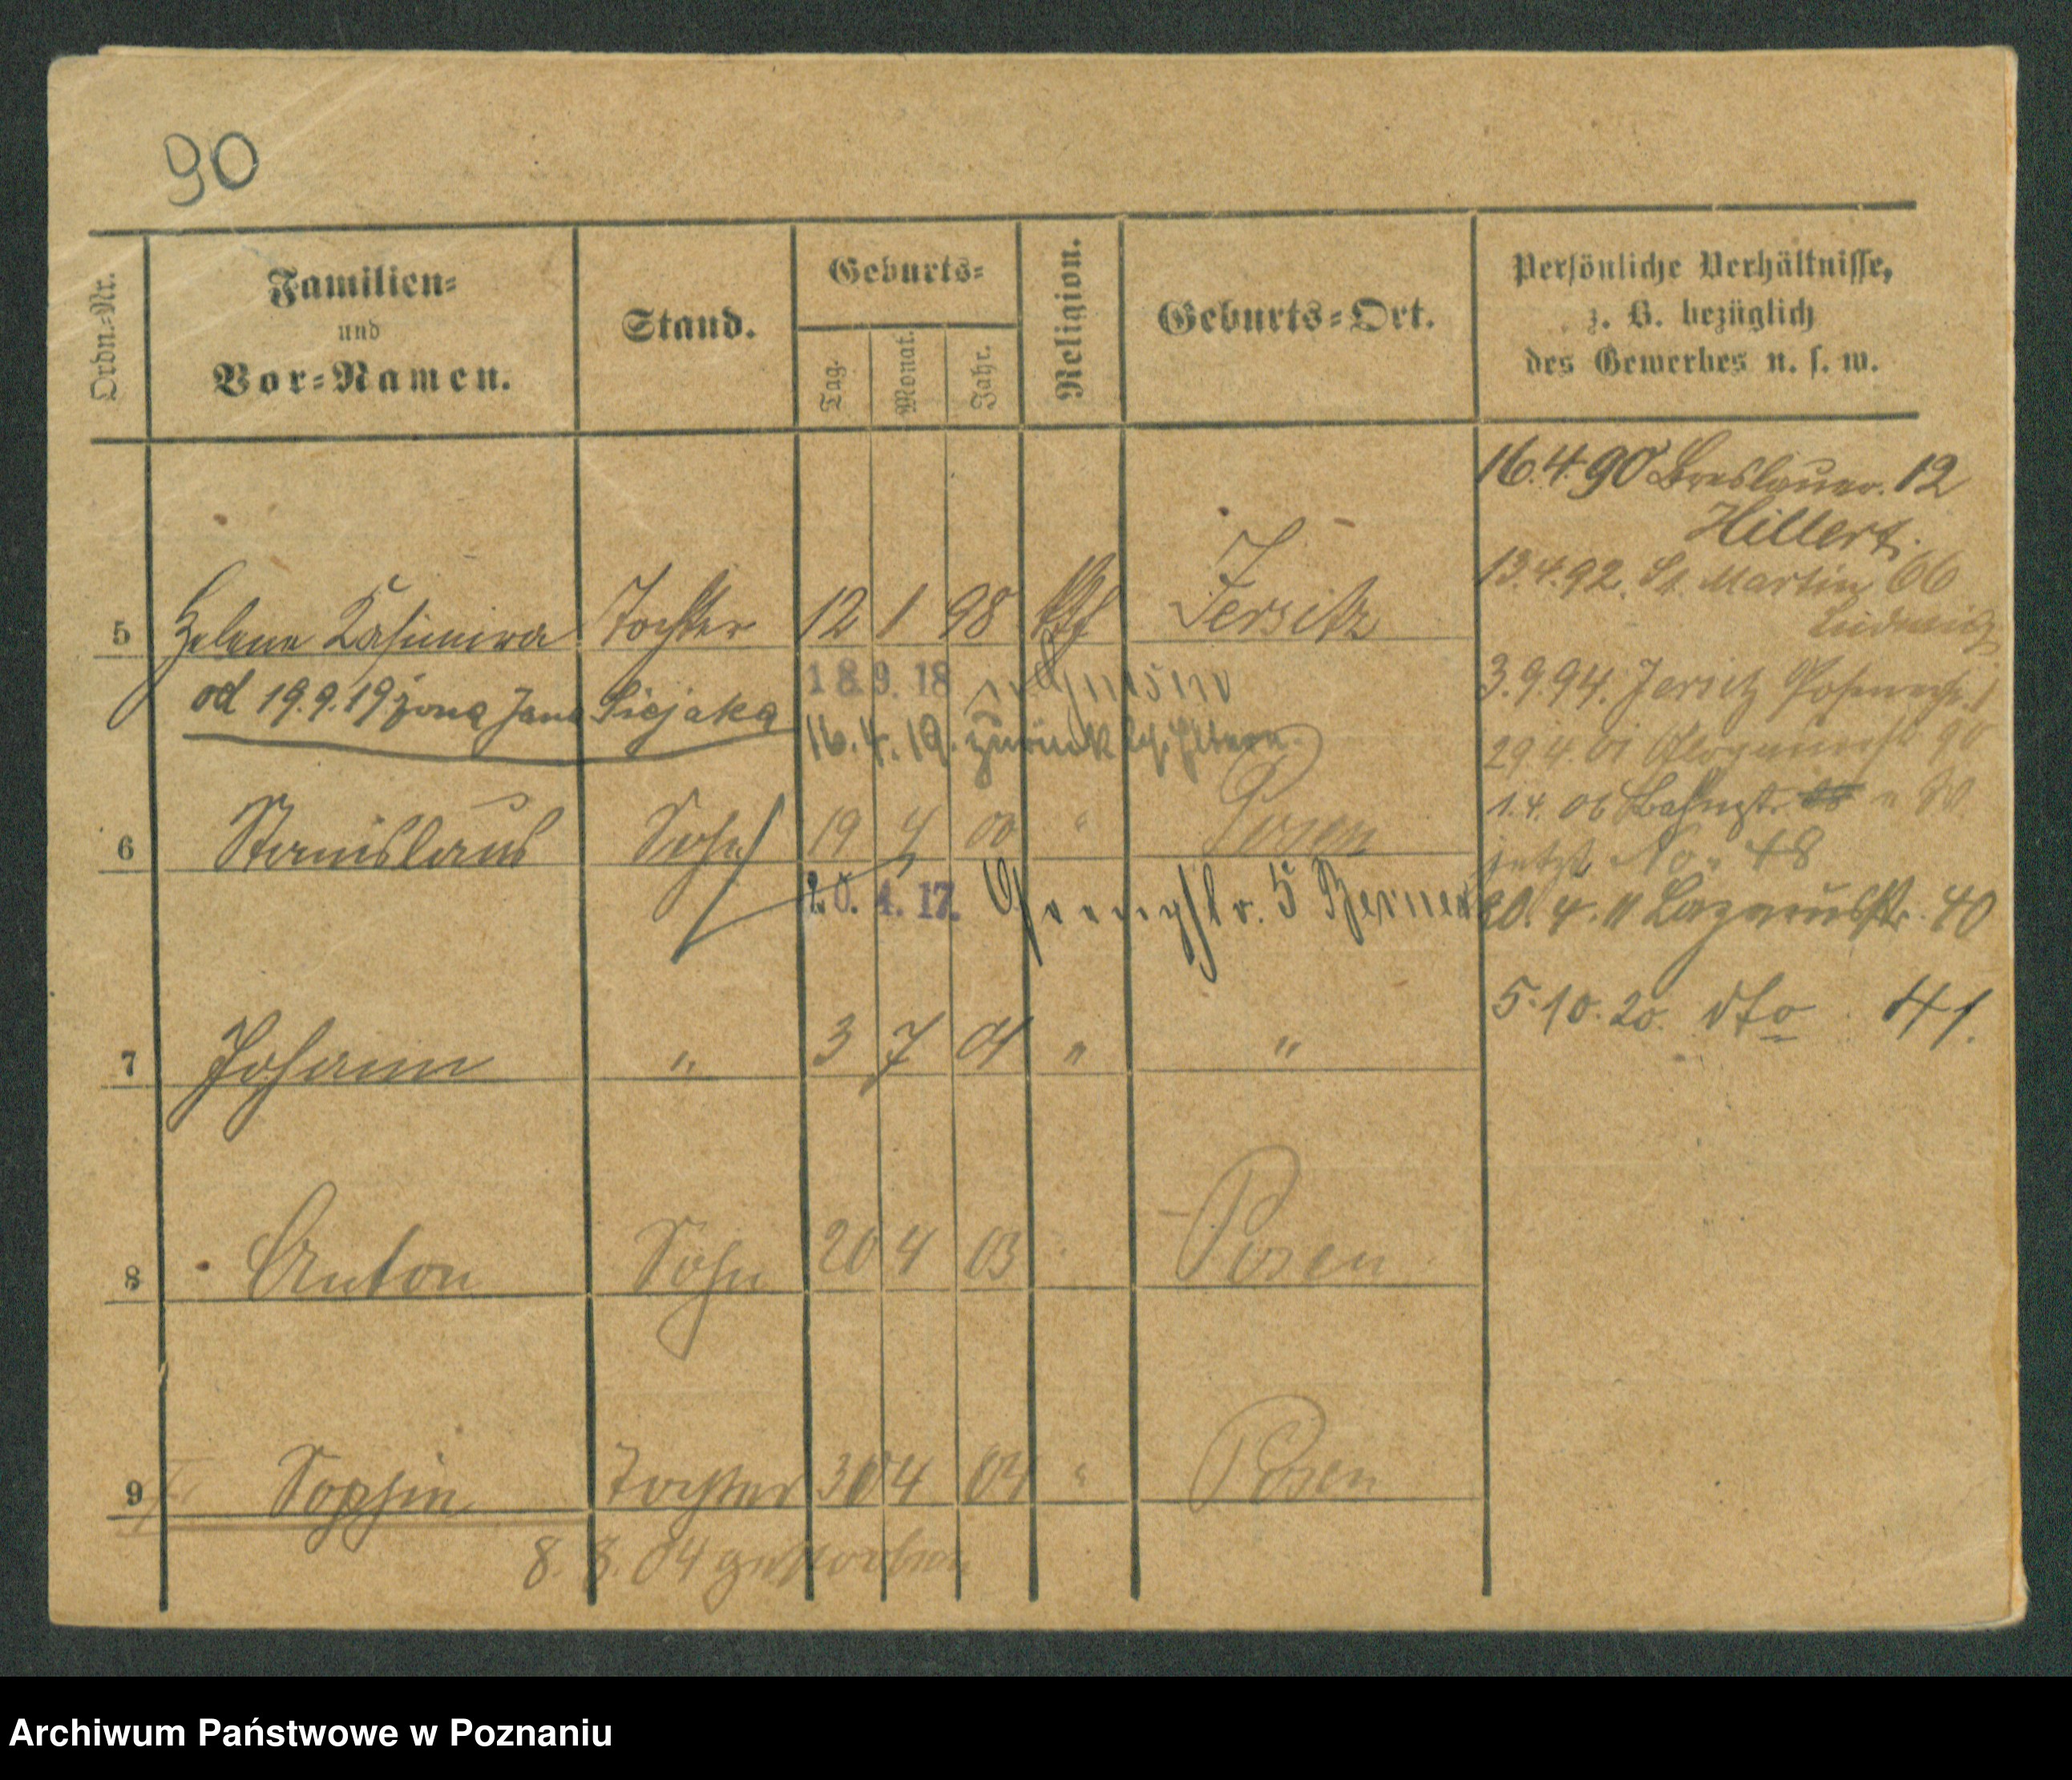 90
Ordn.-Nr.
Familien-
und
Vor-Namen.
Stand.
Geburts-
Tag.
Monat.
Jahr.
Religion.
Geburts-Ort.
Persönliche Verhältnisse,
z. B. bezüglich
des Gewerbes u. s. w.
16.4.90 Breslauer. 12
Hillert.
13.4.92. St. Martin 66
Ludwig
5 Helene Kasimira Tochter 12 1 98 Jersitz
3.9.94. Jersitz
od 19.9.19 żona Jana Siejaka 18.9.18
16.4.19. zurück Eltern
29.4.01 90
1.4.06 Bahnstr.
6 Stanislaus Sohn 19 4 00 " Posen
jetzt No. 48
20.4.17. 5 Berner
20.4.11 Lazarusstr. 40
5.10.20. dto 41.
7 Johann " 3 7 01 " "
8 Anton Sohn 20 4 03 Posen
9 Sophie Tochter 30 4 04 " Posen
8. 8. 04 gestorben
Archiwum Państwowe w Poznaniu